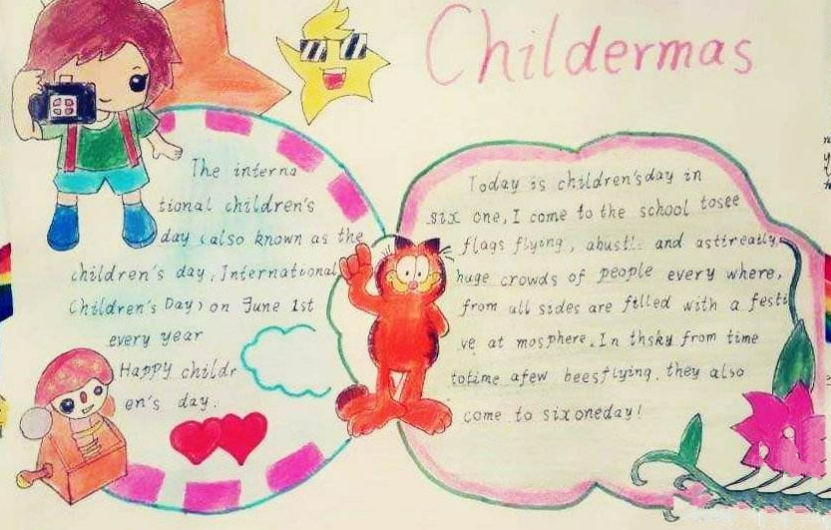 Childermas
The interna
tional children's
day (also known as the
children's day, International
Children's Day) on June 1st
every year
Happy childr
en's day.
Today is children'sday in
six one, I come to the school tosee
flags flying, and
huge crowds of people every where,
from all sides are filled with a festi
ve at mosphere. In thsky from time
totime afew beesflying. they also
come to sixoneday!